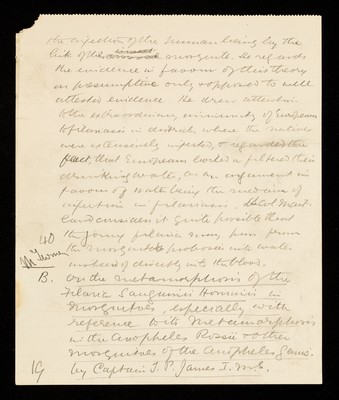 the infection of the human being by the
bite of the insect mosquito. He regards
the evidence in favour of this theory
as presumptive only & opposed to well
attested evidence. He drew attention
to the extraordinary immunity of Europeans
to filariasis in districts where the natives
were extensively infected, & regarded the
fact, that Europeans boiled & filtered their
drinking water, as an argument in
favour of water being the medium of
infection in filariasis. Lt Col Mait-
land considers it quite possible that
40 the young filaria may pass from
the mosquito's proboscis into water
instead of directly into the blood.
B. On the metamorphosis of the
Filaria Sanguinis Hominis in
mosquitoes, especially with
reference to its metamorphosis
in the Anopheles Rossii & other
mosquitoes of the Anopheles Genus.
19 by Captain S. P. James I.M.S.